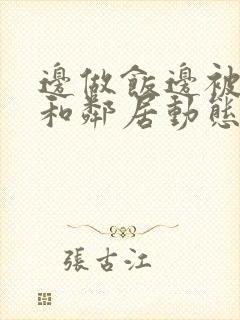 邊做飯邊被
和鄰居動態
張古江